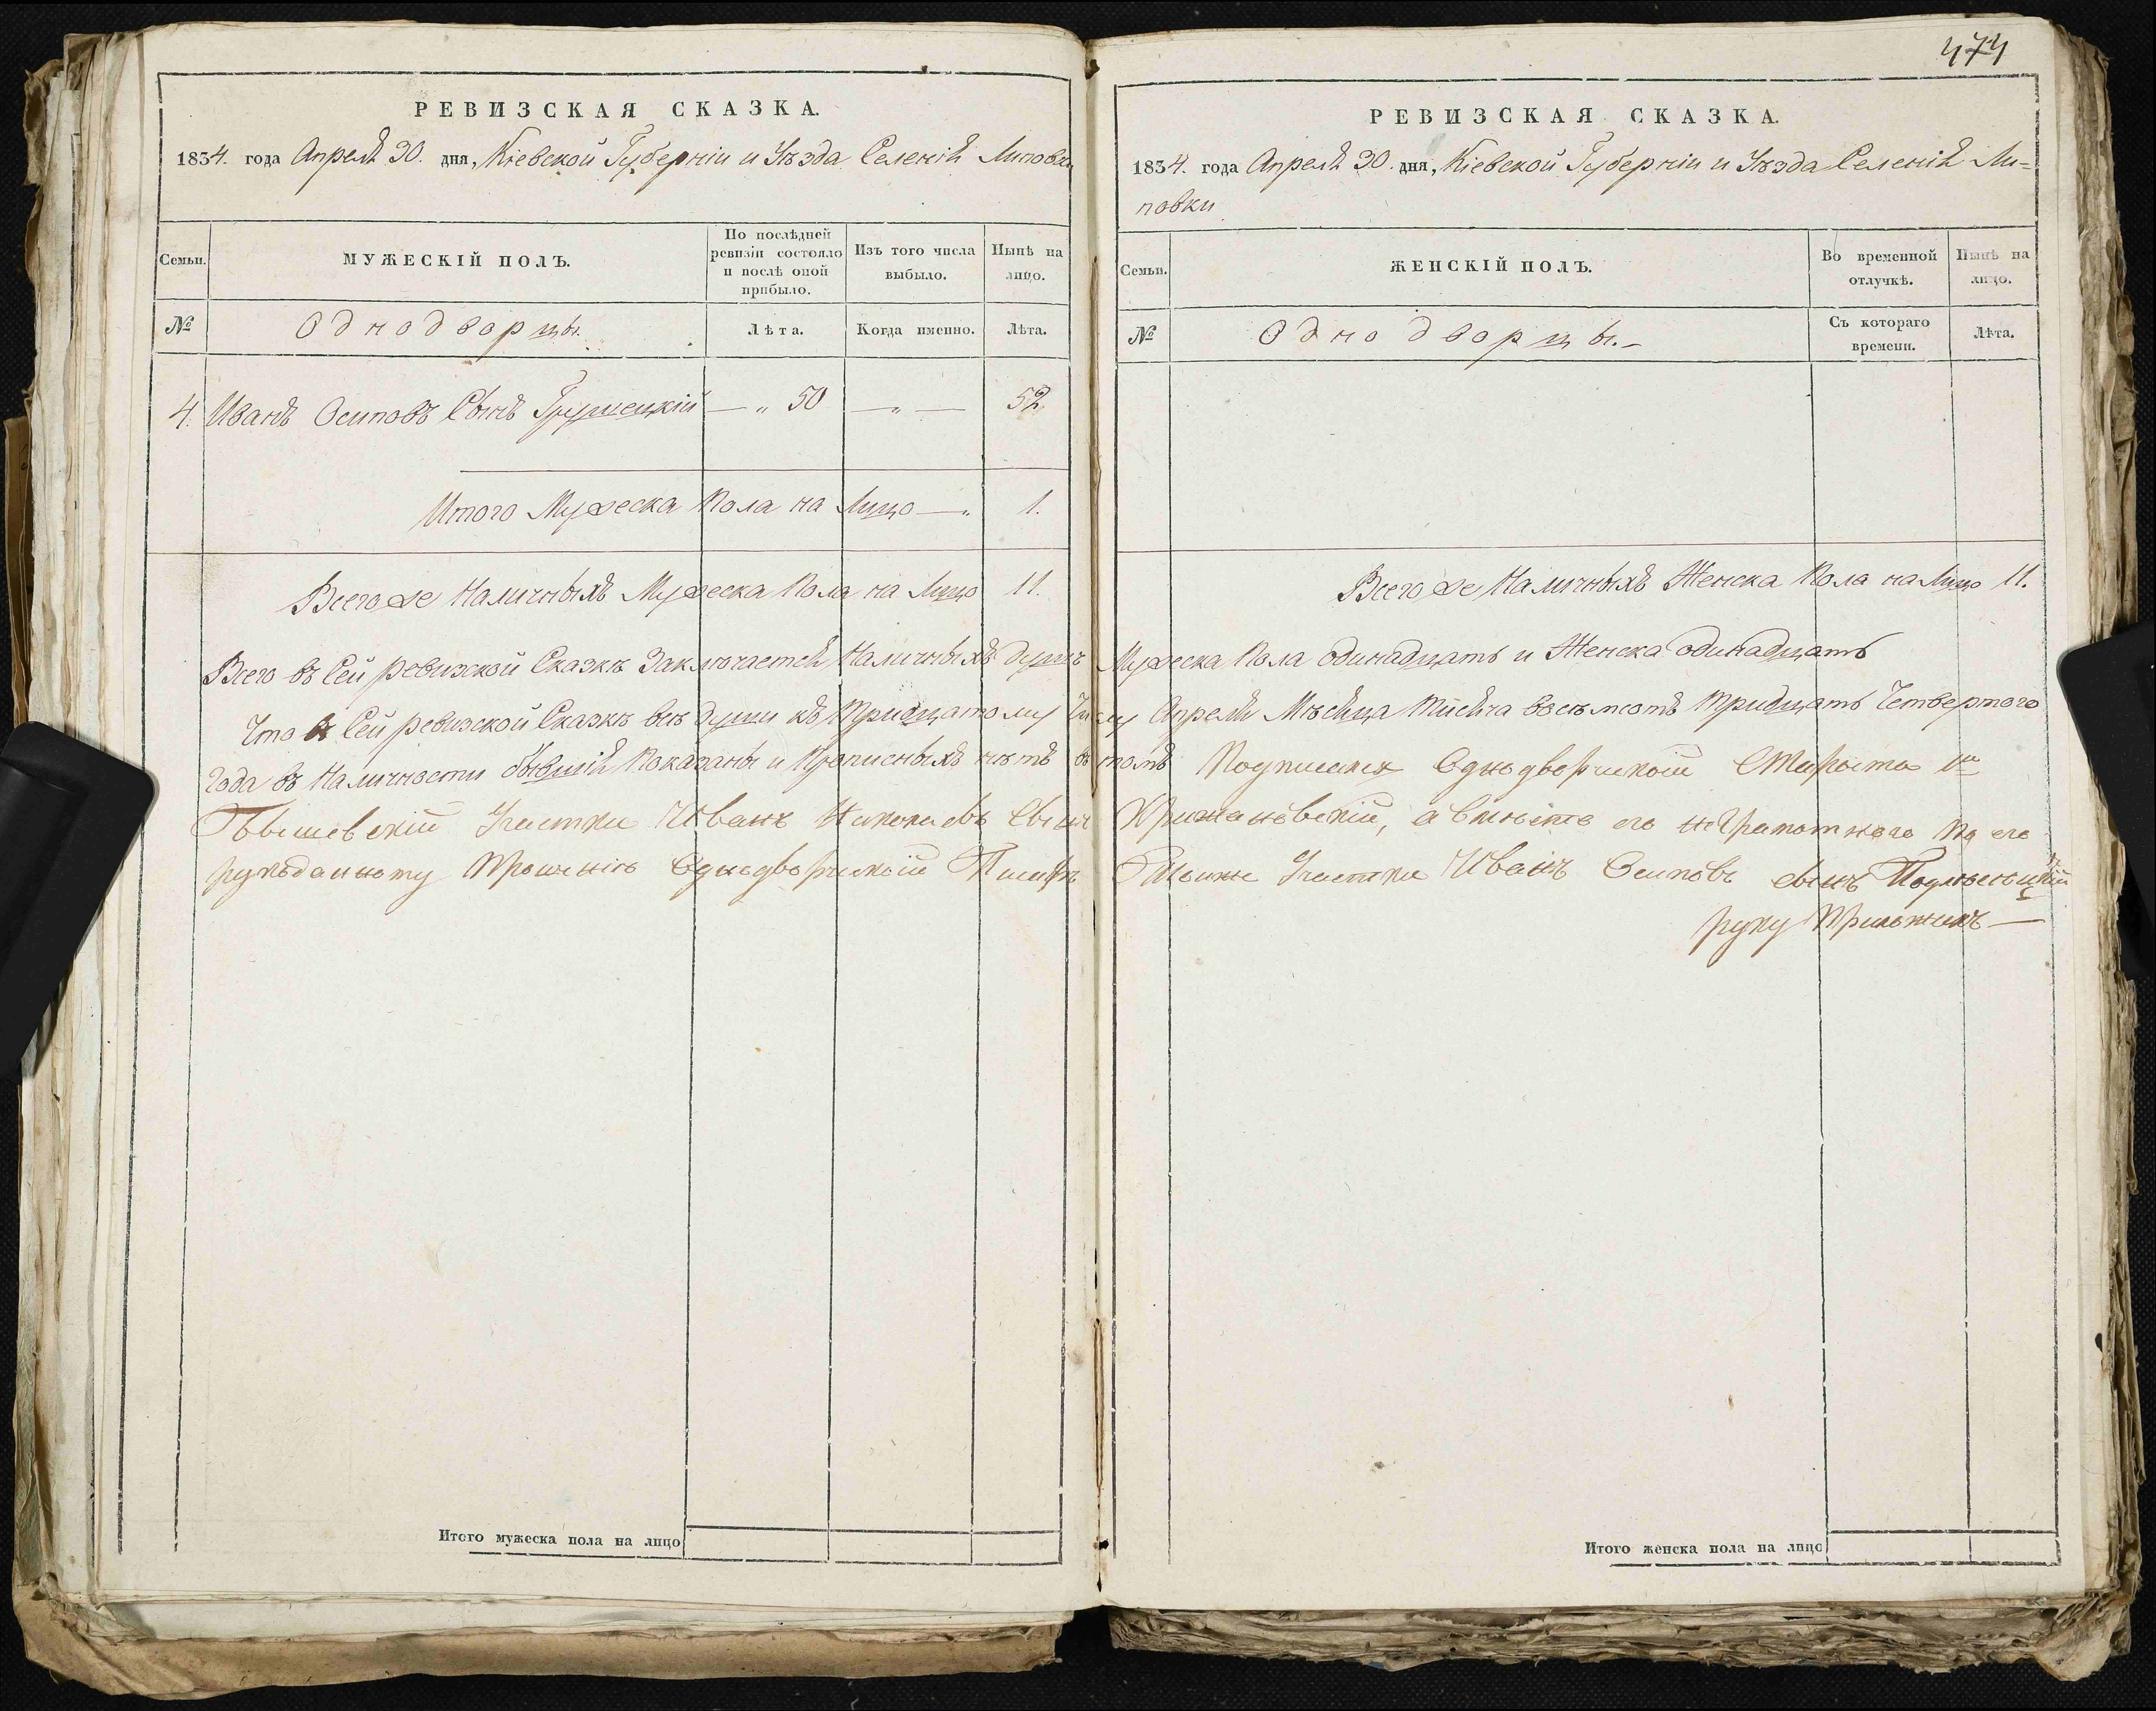 474
РЕВИЗСКАЯ СКАЗКА.
1834. года Апреля 30. дня, Кіевской Губерніи и Уѣзда Селенія Липовки
Семьи.
МУЖЕСКІЙ ПОЛЪ.
По послѣдней ревизіи состояло и послѣ оной прибыло.
Изъ того числа выбыло.
Нынѣ на лицо.
№
Однодворцы.
Лѣта.
Когда именно.
Лѣта.
4. Иванъ Осиповъ Сынъ Грушецкій — „ 50 — „ — 52
Итого Мужеска Пола на Лицо — „ 1.
Всего же Наличныхъ Мужеска Пола на Лицо 11.
РЕВИЗСКАЯ СКАЗКА.
1834. года Апреля 30. дня, Кіевской Губерніи и Уѣзда Селенія Ли-
повки
Семьи.
ЖЕНСКІЙ ПОЛЪ.
Во временной отлучкѣ.
Нынѣ на лицо.
№
Однодворцы.-
Съ котораго времени.
Лѣта.
Всего же Наличныхъ Женска Пола на Лицо 11.
Всего въ Сей ревизской Сказкѣ Заключается Наличныхъ душъ Мужеска Пола одинадцать и Женска одинадцать
Что в Сей ревизской Сказкѣ всѣ души къ Тридцатому Числу Апреля Мѣсяца Тысяча восемсотъ Тридцать Четвертого
Года въ Наличности бывшія Показаны и Прописныхъ нѣтъ въ томъ Подписался Однодворческій Староста 1го
Участка Иванъ Николаевъ Сынъ Крижановскій, а вместо его неграмотнаго по его
рукоданному Прошенію Однодворческій Писарь Участка Иванъ Осиповъ сынъ
руку Приложилъ —
Итого мужеска пола на лицо
Итого женска пола на лицо